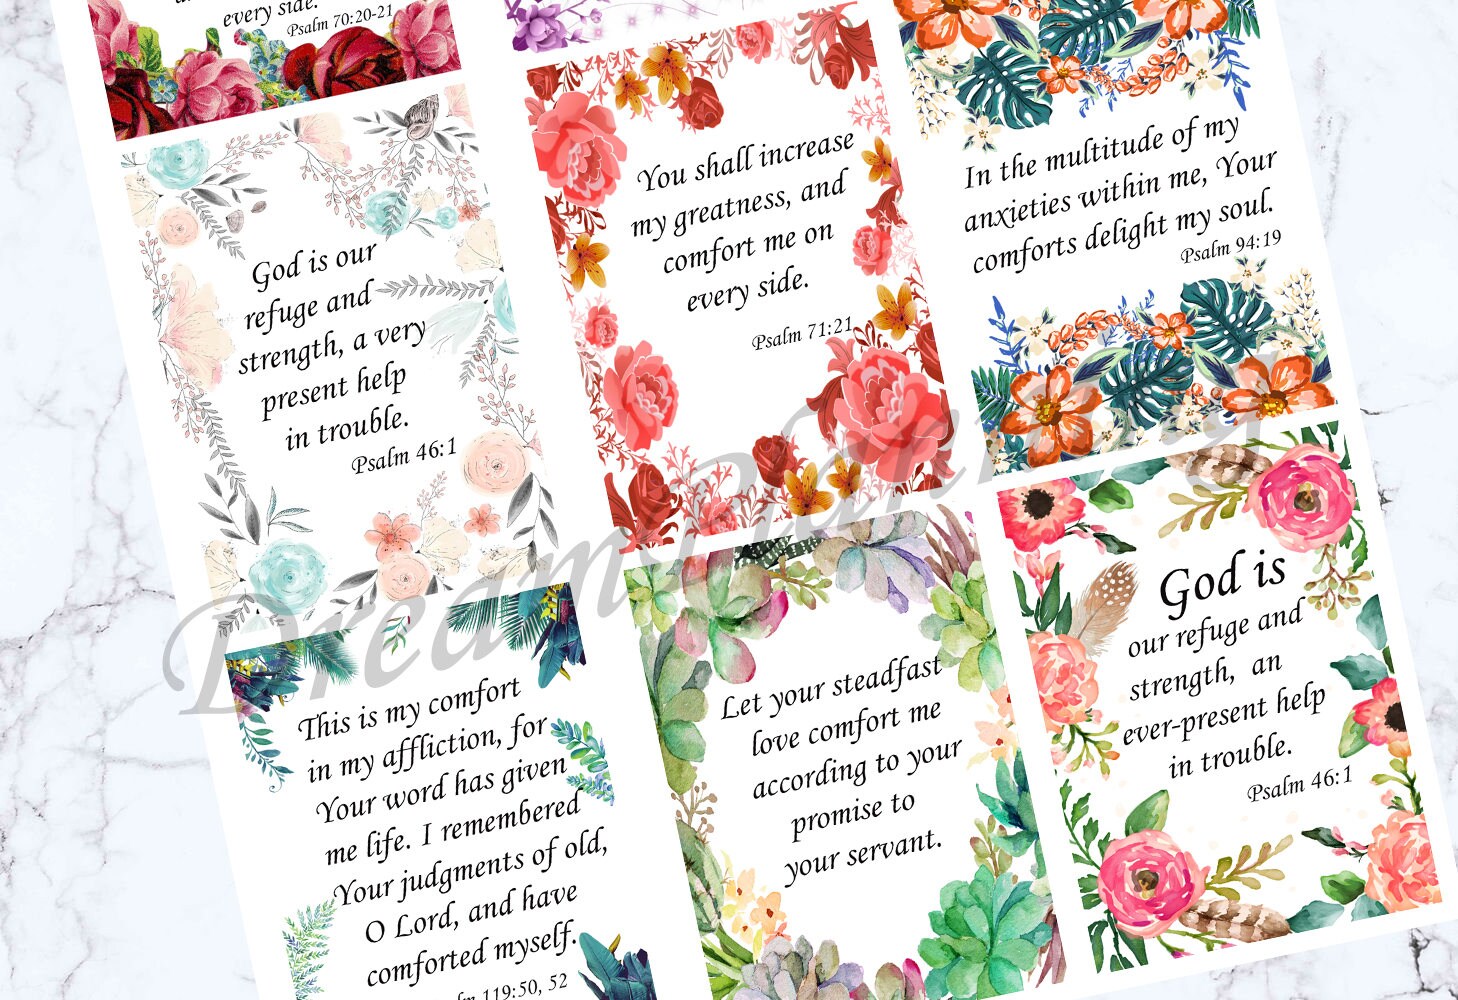 every side.
Psalm 70:20-21
God is our
refuge and
strength, a very
present help
in trouble.
Psalm 46:1
You shall increase
my greatness, and
comfort me on
every side.
Psalm 71:21
In the multitude of my
anxieties within me, Your
comforts delight my soul.
Psalm 94:19
This is my comfort
in my affliction, for
Your word has given
me life. I remembered
Your judgments of old,
O Lord, and have
comforted myself.
119:50, 52
Let your steadfast
love comfort me
according to your
promise to
your servant.
God is
our refuge and
strength, an
ever-present help
in trouble.
Psalm 46:1
DreamPlanning